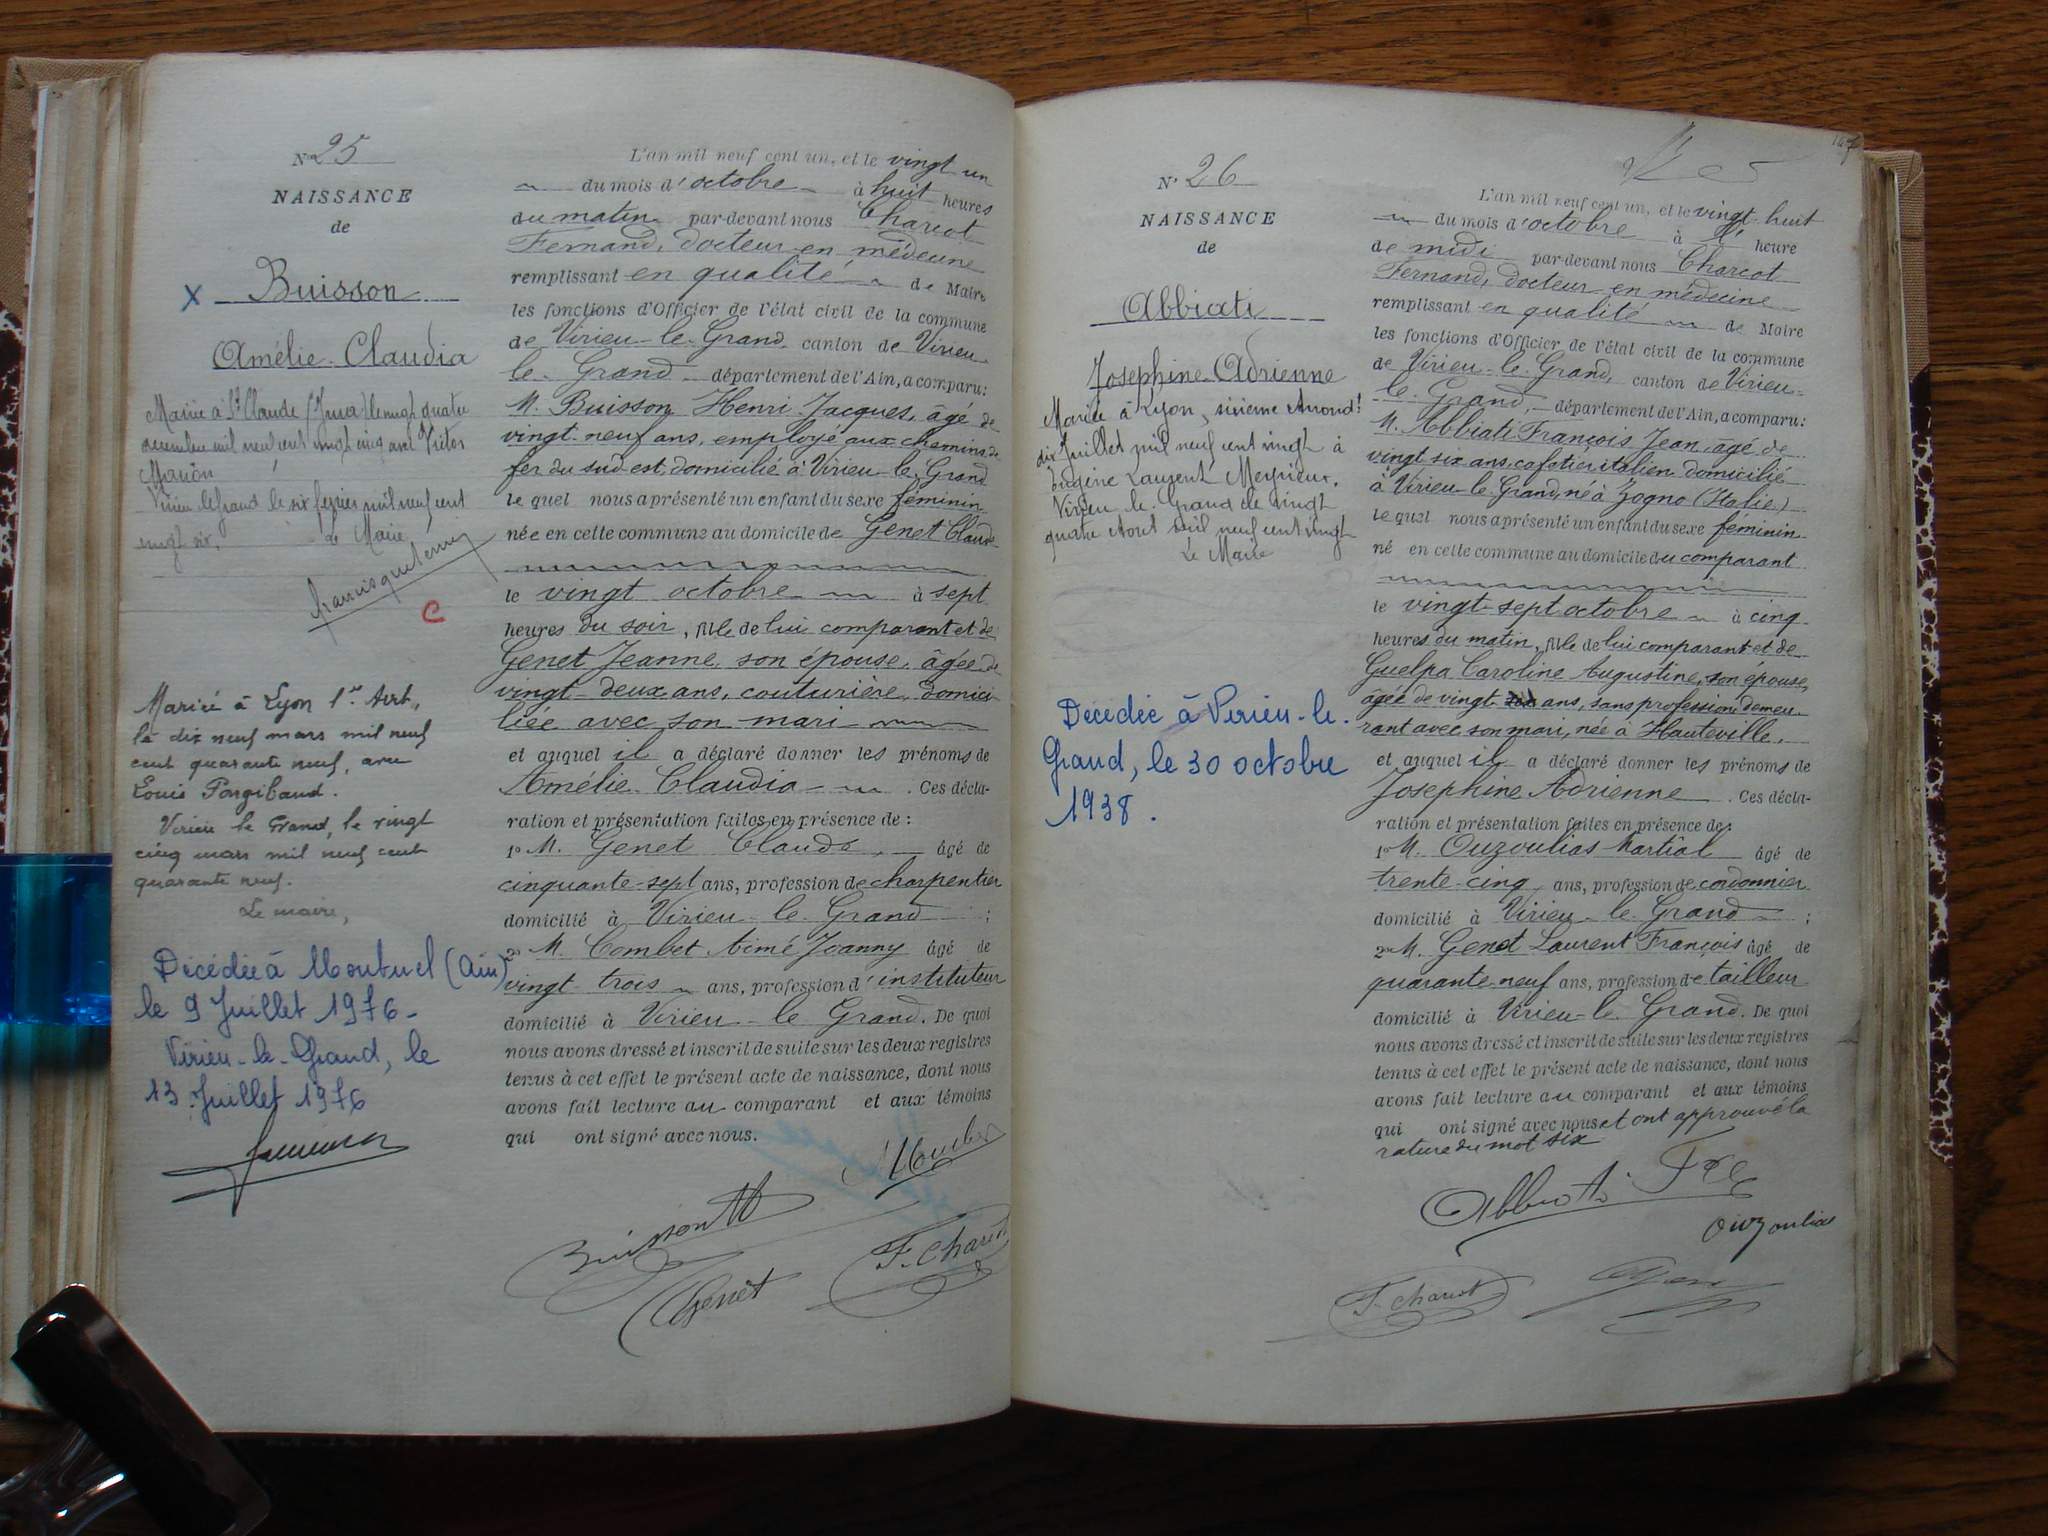 N° 25
NAISSANCE
de
X Buisson
Amélie Claudia
Mariée à St Claude (Jura) le vingt quatre
mil neuf cent vingt cinq avec Victor
Virieu le Grand le six février mil neuf cent
vingt six.
Le Maire
C
Mariée à Lyon 1er Arrt,
le dix neuf mars mil neuf
cent quarante neuf, avec
Louis Pongibaud.
Virieu le Grand, le vingt
cinq mars mil neuf cent
quarante neuf.
Le maire,
Décédée à Montluel (Ain)
le 9 Juillet 1976-
Virieu-le-Grand, le
13 Juillet 1976
L'an mil neuf cent un, et le vingt un
du mois d'octobre à huit heures
du matin par-devant nous Charcot
Fernand, docteur en médecine
remplissant en qualité de Maire
les fonctions d'Officier de l'état civil de la commune
de Virieu-le-Grand, canton de Virieu
le-Grand département de l'Ain, a comparu:
M. Buisson Henri Jacques, âgé de
vingt-neuf ans, employé aux chemins de
fer du sud est domicilié à Virieu-le-Grand
le quel nous a présenté un enfant du sexe féminin
née en cette commune au domicile de Genet Claude
le vingt octobre à sept
heures du soir, fille de lui comparant et de
Genet Jeanne, son épouse, âgée de
vingt-deux ans, couturière, domici
liée avec son mari
et auquel il a déclaré donner les prénoms de
Amélie Claudia. Ces décla-
ration et présentation faites en présence de:
1° M. Genet Claude, âgé de
cinquante-sept ans, profession de charpentier
domicilié à Virieu-le-Grand;
2° M. Combet Aimé Joanny âgé de
vingt-trois ans, profession d'instituteur
domicilié à Virieu-le-Grand. De quoi
nous avons dressé et inscrit de suite sur les deux registres
tenus à cet effet le présent acte de naissance, dont nous
avons fait lecture au comparant et aux témoins
qui ont signé avec nous.
Buisson H
Genet
F. Charcot
N° 26
NAISSANCE
de
Abbiati
Josephine Adrienne
Mariée à Lyon, sixième Arrond!
dix Juillet mil neuf cent vingt à
Eugène Laurent
Virieu-le-Grand le vingt
quatre Aout mil neuf cent vingt
Le Maire
Décédée à Virieu-le-
Grand, le 30 octobre
1938.
L'an mil neuf cent un, et le vingt-huit
du mois d'octobre à 1 heure
de midi par-devant nous Charcot
Fernand, docteur en médecine
remplissant en qualité de Maire
les fonctions d'Officier de l'état civil de la commune
de Virieu-le-Grand, canton de Virieu-
le-Grand, département de l'Ain, a comparu:
M. Abbiati François Jean, âgé de
vingt six ans, cafetier italien domicilié
à Virieu-le-Grand, né à Zogno (Italie)
le quel nous a présenté un enfant du sexe féminin
né en cette commune au domicile du comparant
le vingt-sept octobre à cinq
heures du matin, fille de lui comparant et de
Guelpa Caroline Augustine, son épouse,
âgée de vingt six ans, sans profession demeu-
rant avec son mari, née à Hauteville.
et auquel il a déclaré donner les prénoms de
Josephine Adrienne. Ces décla-
ration et présentation faites en présence de:
1° M. Ouzoulias Martial âgé de
trente-cinq ans, profession de cordonnier
domicilié à Virieu-le-Grand;
2° M. Genet Laurent François âgé de
quarante-neuf ans, profession de tailleur
domicilié à Virieu-le-Grand. De quoi
nous avons dressé et inscrit de suite sur les deux registres
tenus à cet effet le présent acte de naissance, dont nous
avons fait lecture au comparant et aux témoins
qui ont signé avec nous et ont approuvé la
rature du mot six
Abbiati
Ouzoulias
F. Charcot